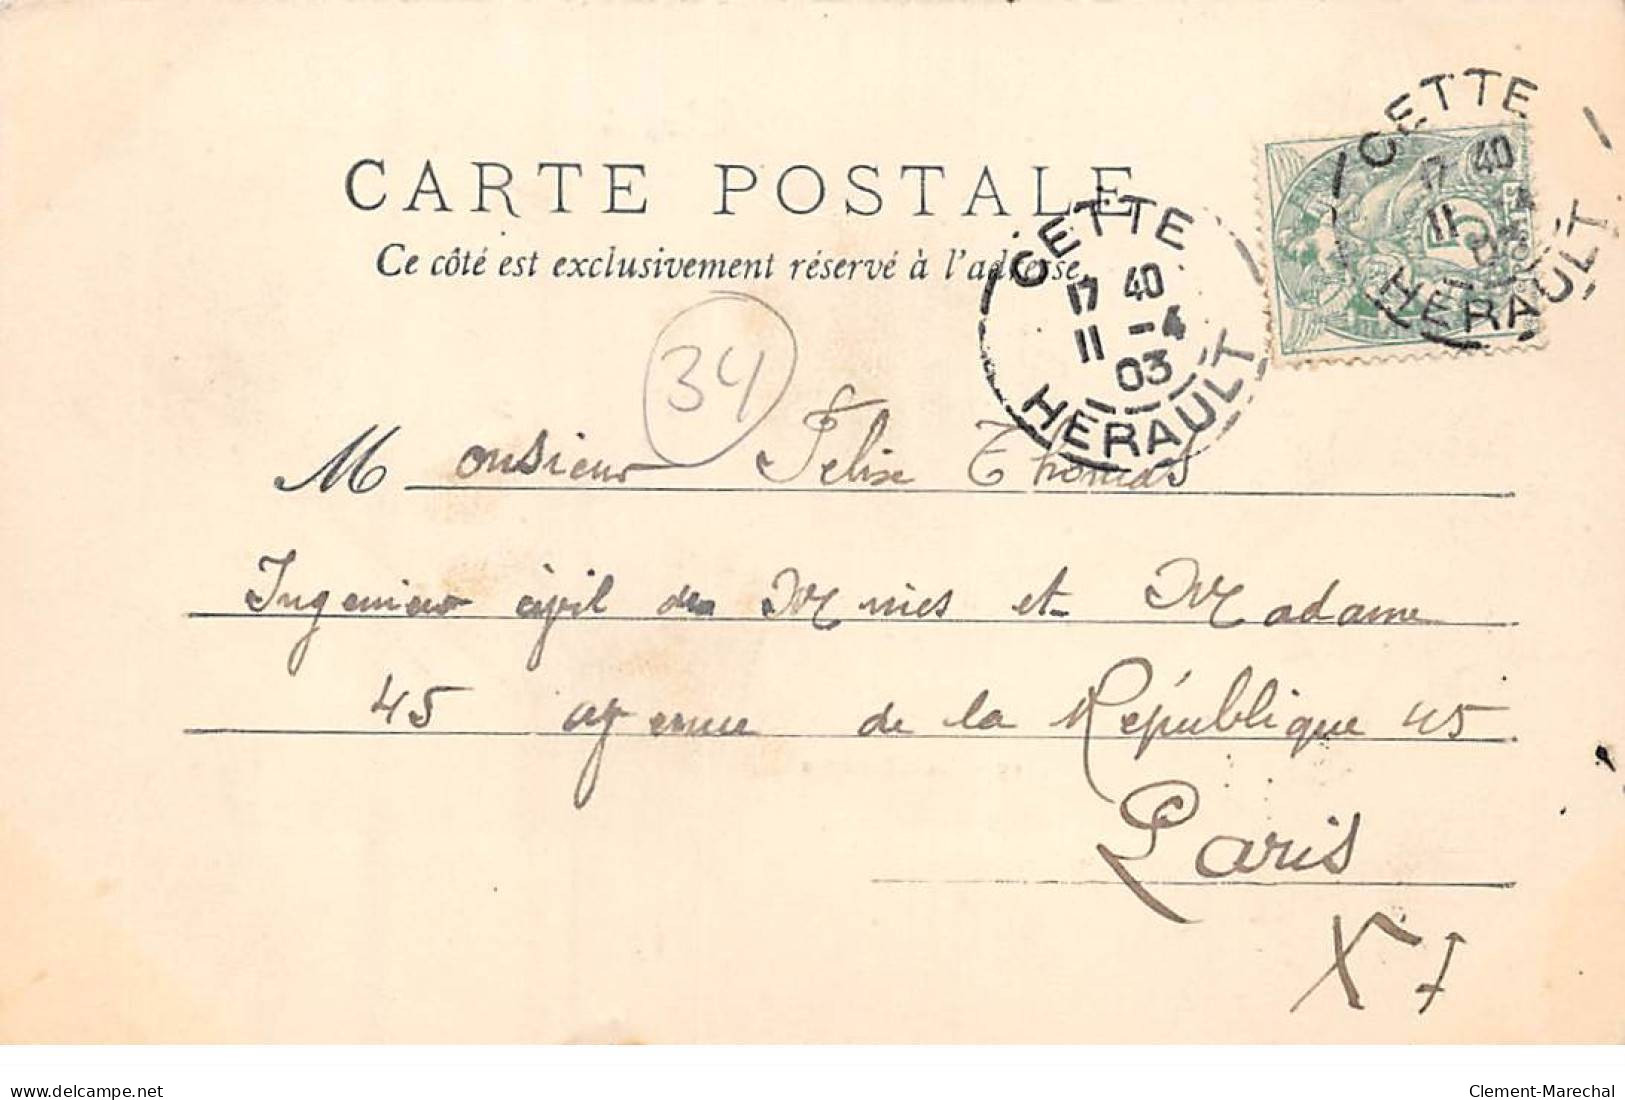 CARTE POSTALE
Ce côté est exclusivement réservé à l'adresse
CETTE
17 40
11 -4
03
HERAULT
CETTE
17 40
11 4
03
HERAULT
5
34
Monsieur Felix Thomas
Ingenieur civil des Mines et Madame
45 avenue de la République 45
Paris
XI
www.delcampe.net
Clement-Marechal